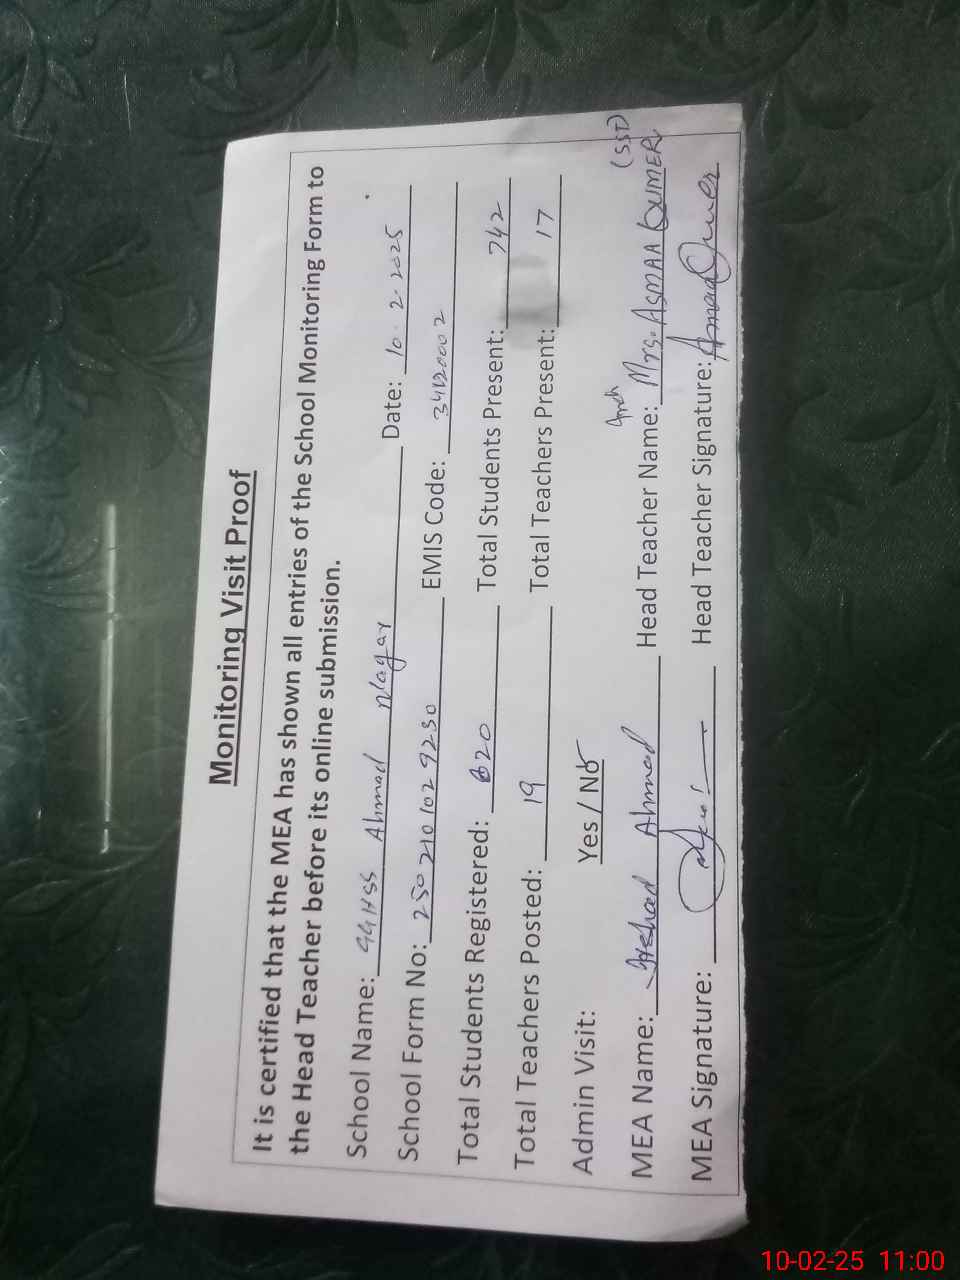 Monitoring Visit Proof
It is certified that the MEA has shown all entries of the School Monitoring Form to
the Head Teacher before its online submission.
School Name: GGHSS Ahmad Nagar Date: 10-2-2025
School Form No: 250210102 9230 EMIS Code: 34120002
Total Students Registered: 820 Total Students Present: 742
Total Teachers Posted: 19 Total Teachers Present: 17
Admin Visit: Yes / No
MEA Name: Irshad Ahmad Head Teacher Name: Mrs. ASMAA QUMER (SST)
MEA Signature: Head Teacher Signature: Asmaa Qumer
10-02-25 11:00